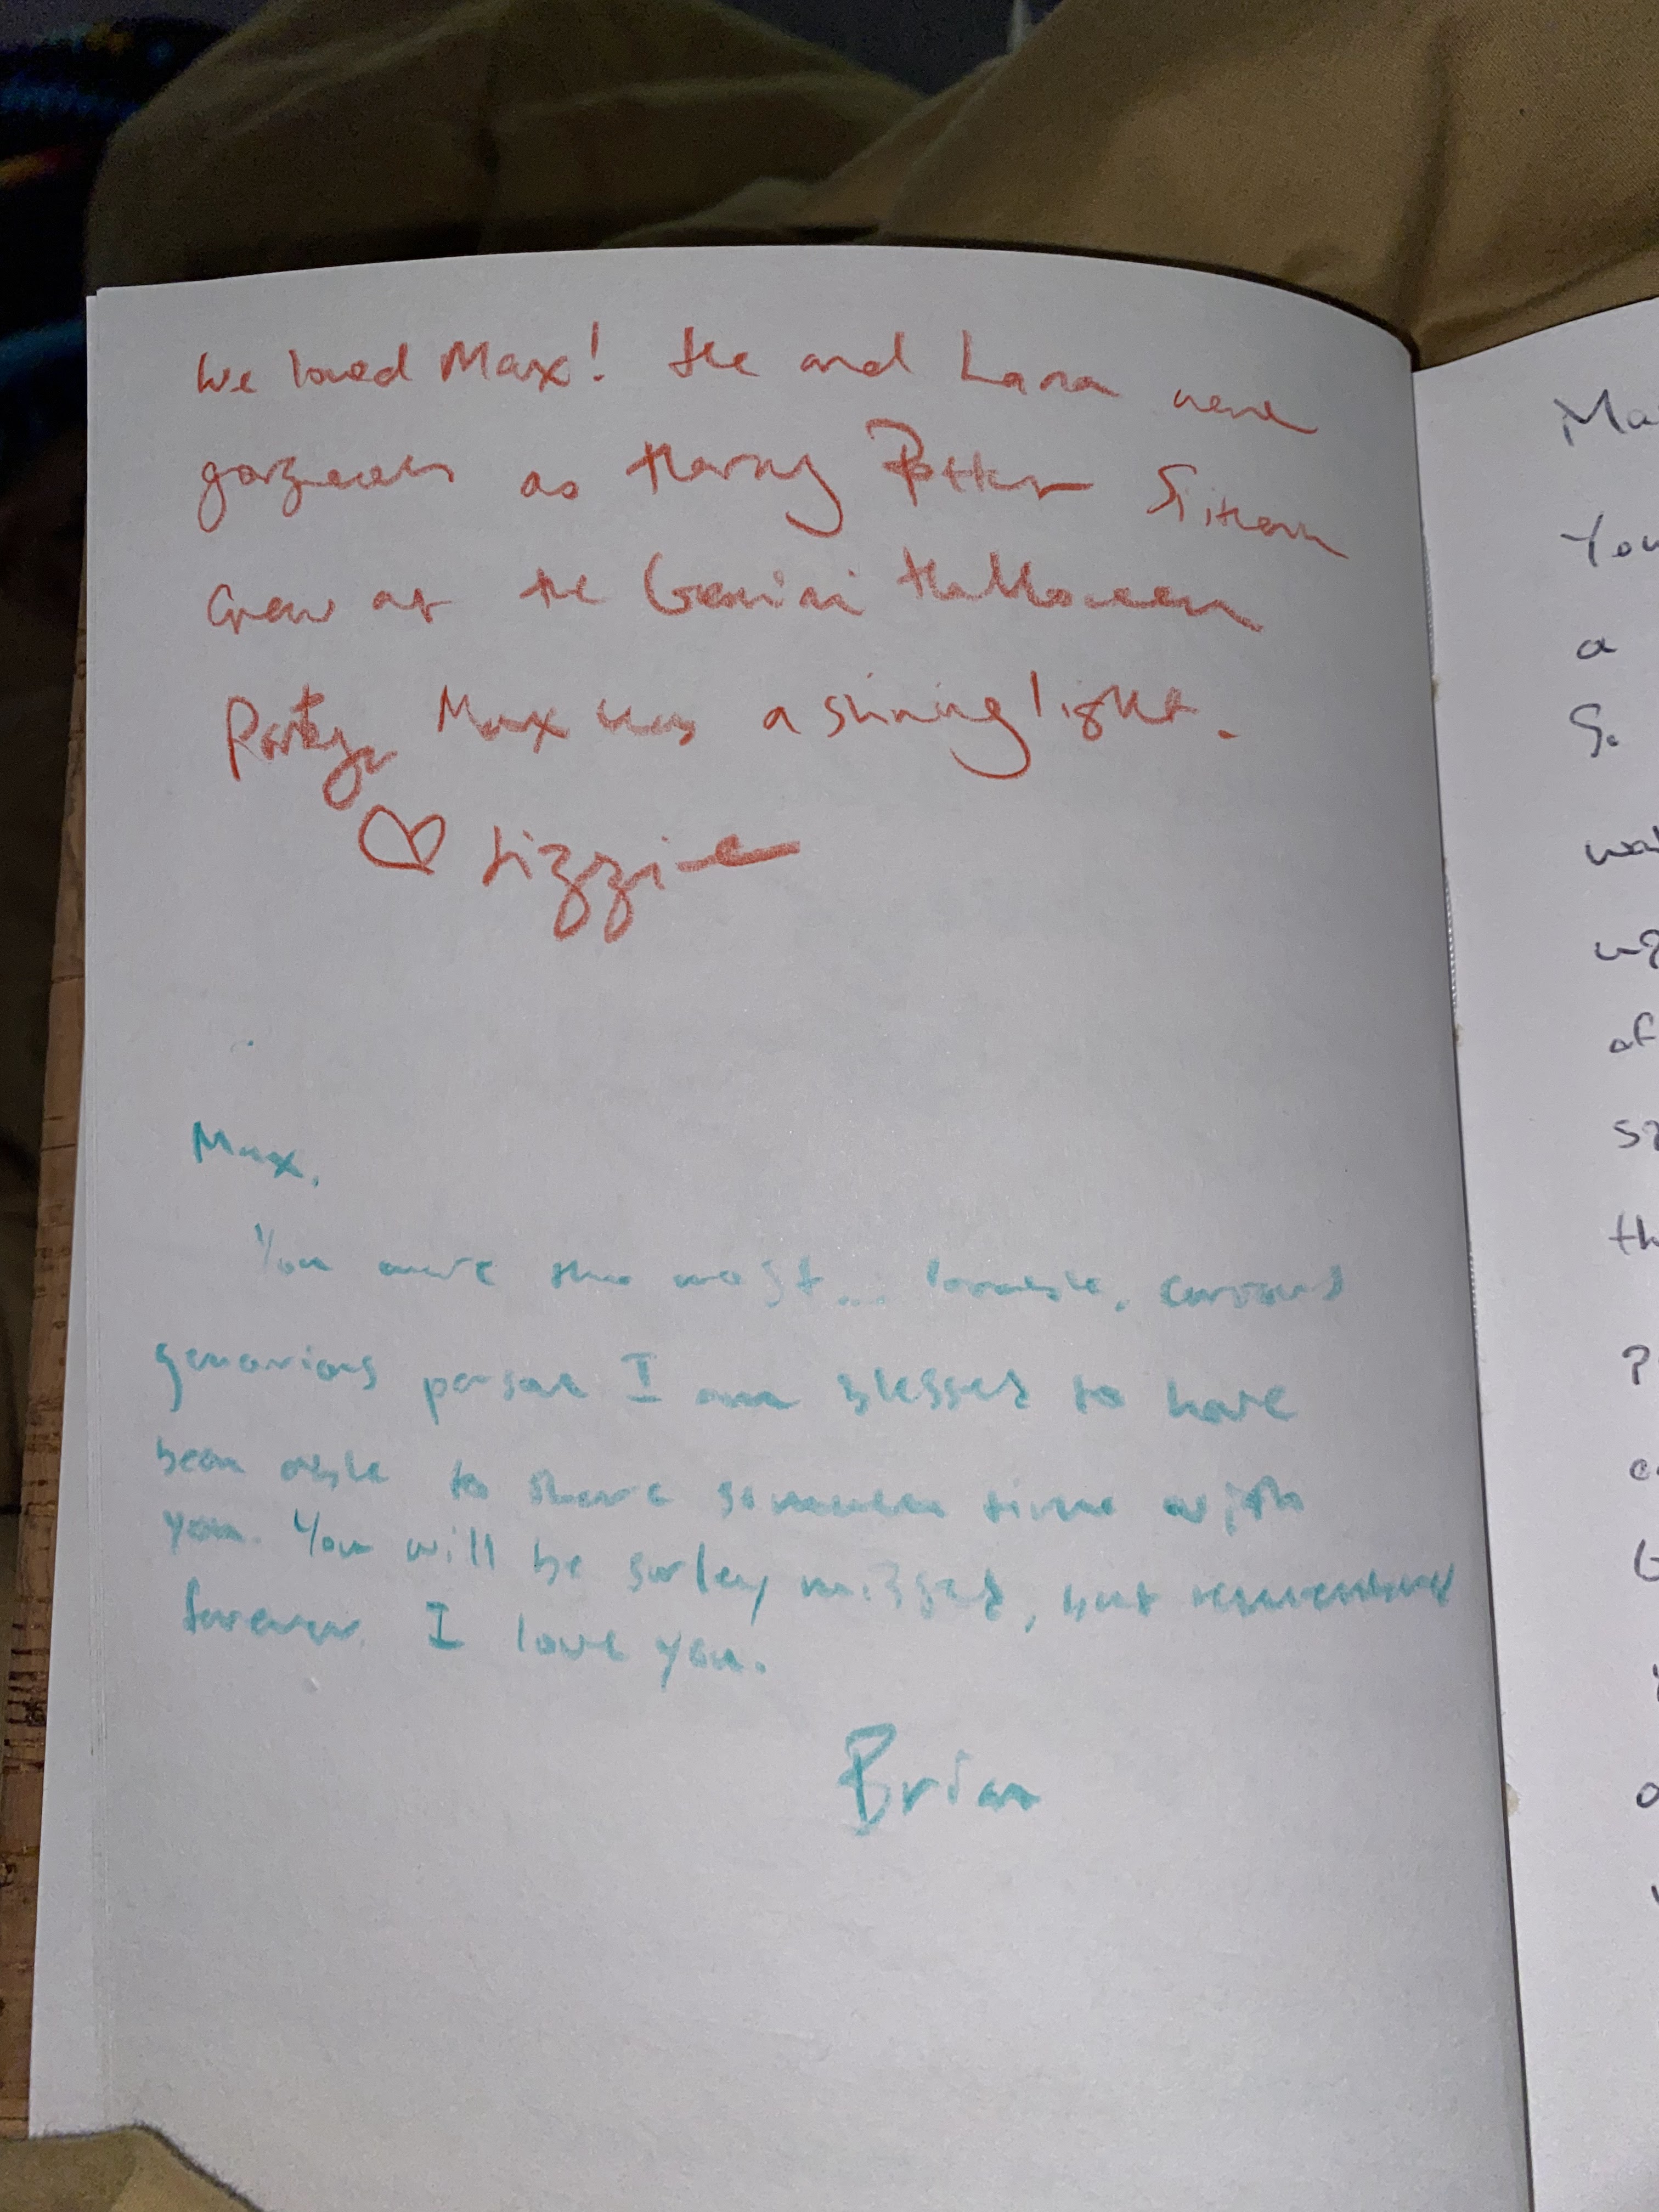 We loved Max! He and Lana were
gorgeous as Harry Potter
Crew at the Gemini Halloween
Party Max was a shining light.
♡ Lizzie
Max,
You were the most... lovable, curious
generious person I am blessed to have
been able to share time with
you. You will be surley missed, but remembered
forever. I love you.
Brian
Ma
You
a
So
wa
of
th